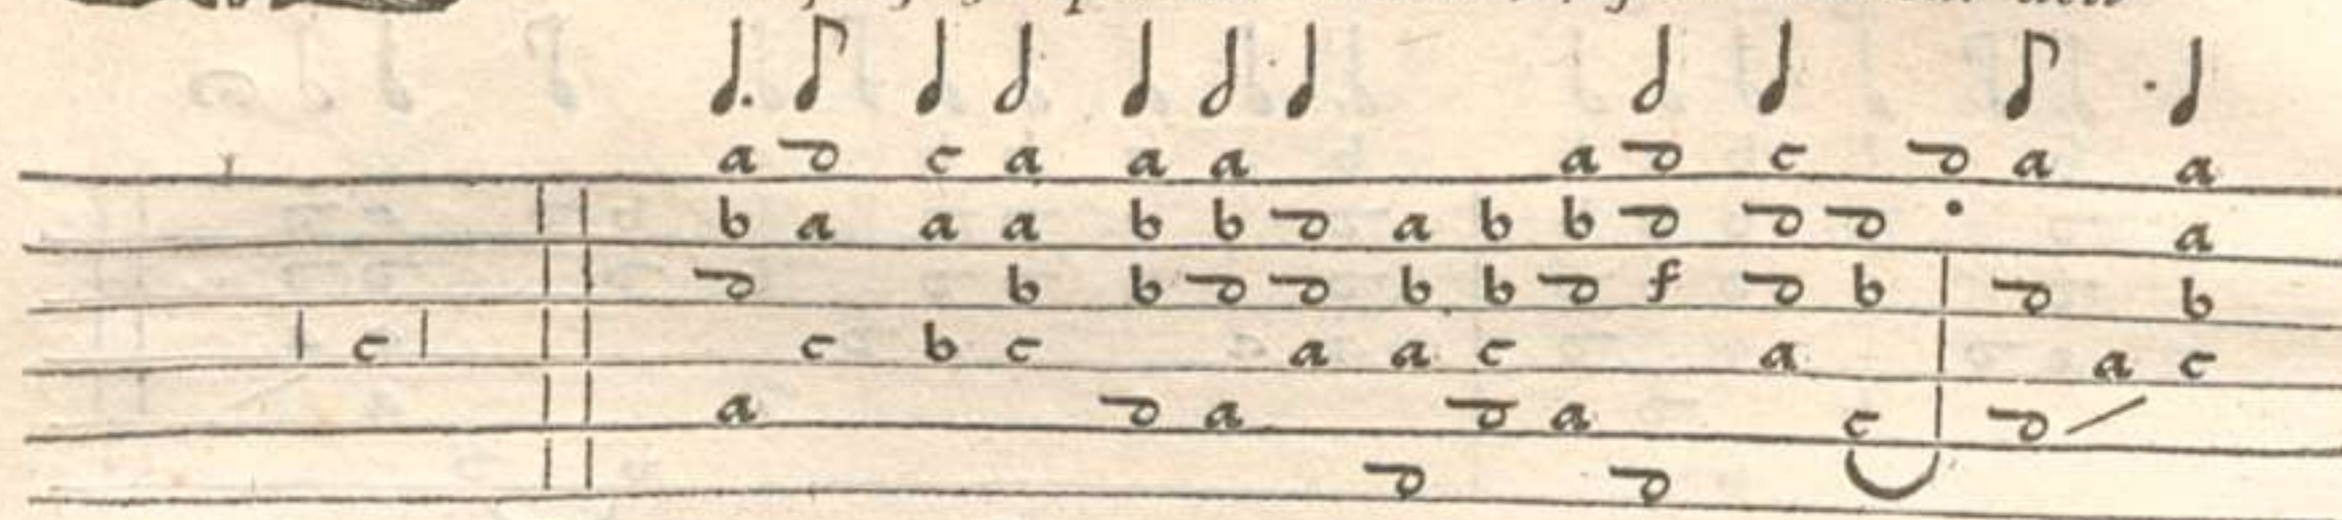 a d c a a a a d c d a a
b a a a b b d a b b d d d a
d b b d d b b d f d b d b
c c b c a a c a a c
a d a d a c d
d d